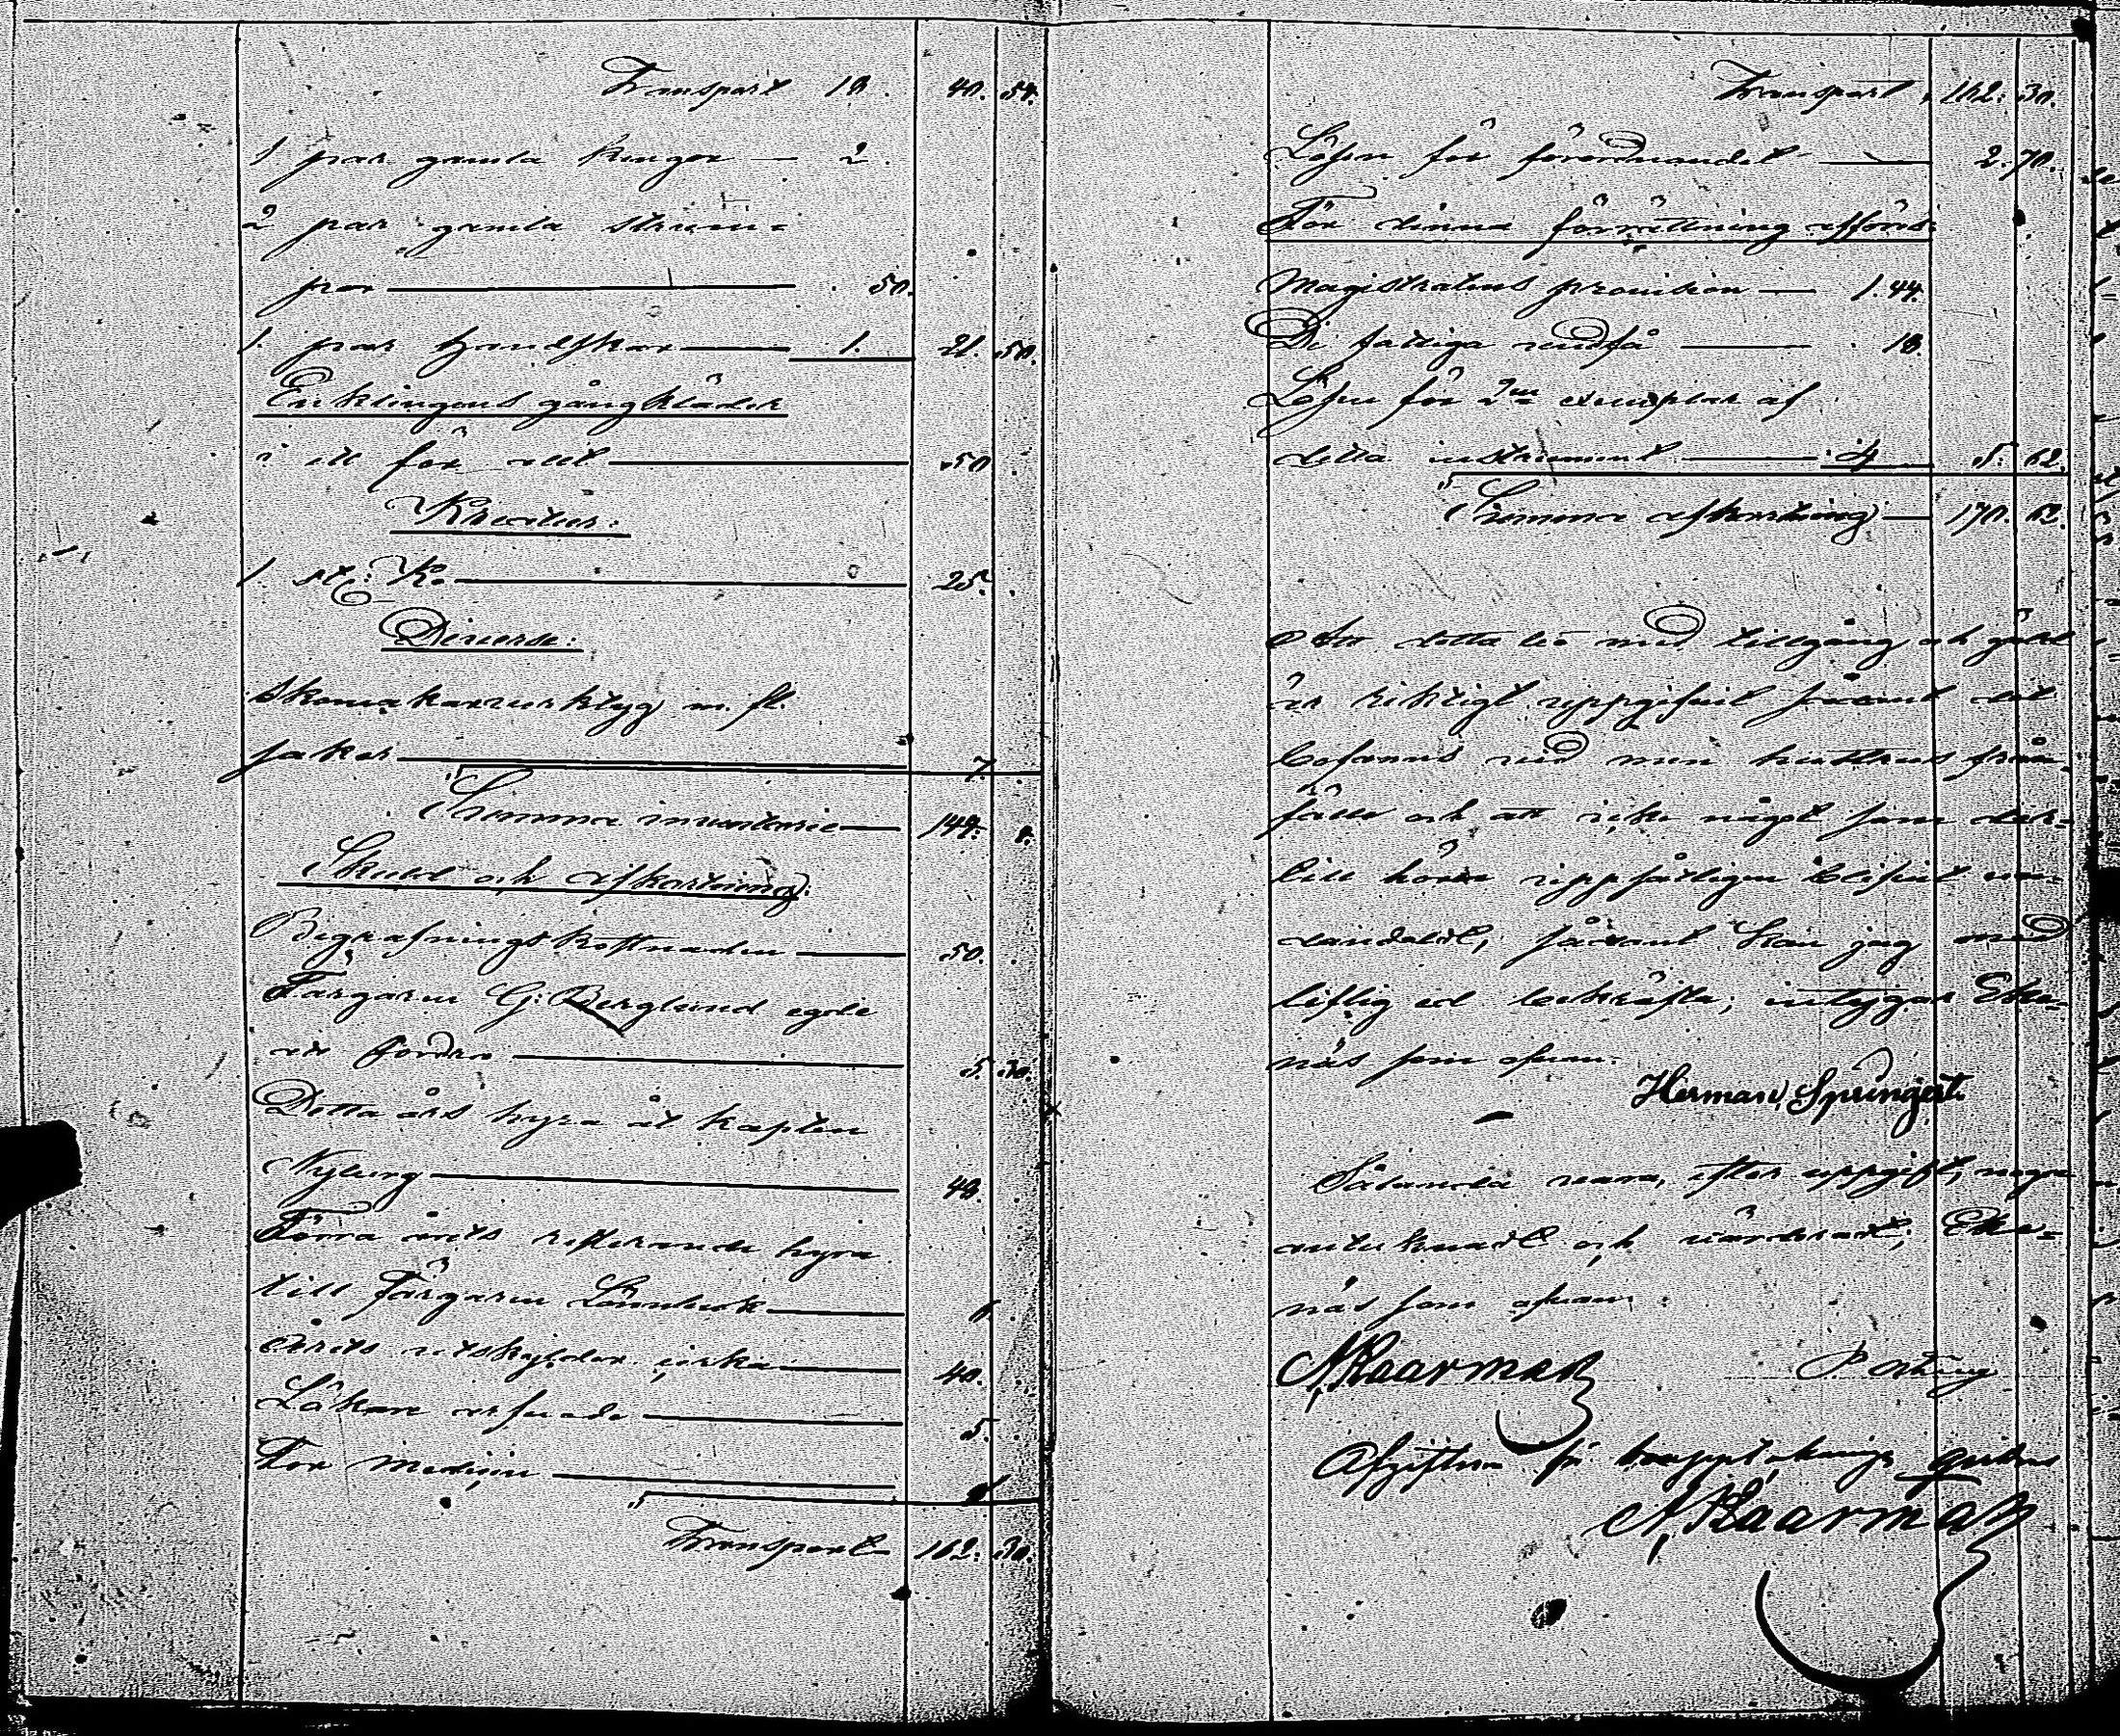 Transport 18. 40. 54.
1 par gamla kengor — 2.
2 par gamla strum=
por — . 50.
1. par handskar — 1. 21. 50.
Enklingens gångkläder
i ett för allt — 50
Kreatur:
1. st: K: — 25.
Diverse:
Skomakareverktyg m. fl.
saker — 7.
Summa inventarie — 144.
Skuld och afkortning:
Begrafningskostnaden — 50.
Färgaren G: Berglund egde
att fordra — 5. 30.
Detta års hyra åt kapten
Nyberg — 48.
Förra årets resterande hyra
till Färgaren Lönnbeck —
Årets utskylder cirka — 40.
Läkare arfvode — 5.
För medicin —
Transport 162. 30.
Transport 162. 30.
Lösen för förordnandet — 2. 70.
För denna förrättning afförs:
Magistratens provision — 1. 44.
De fattiga undfå — 18.
Lösen för 2ne exemplar af
detta instrument — 4 5. 62.
Summa afkortning — 170. 62.
Att detta bo med tillgång och gäld
är riktigt uppgifvet såsom det
befanns vid min hustrus från
fälle och att icke något som der=
till hörer uppsåtligen blifvit un=
dandoldt, sådant kan jag med
liflig ed bekräfta; intygar Eke=
näs som ofvan.
Herman Springert.
Sålunda vara, efter uppgift, noga
antecknadt och värderadt; Eke=
näs som ofvan.
A, Kaarman
Afgiften för
A, Kaarman